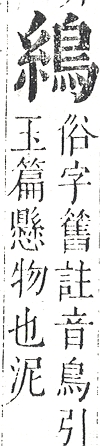 䌁
俗字舊註音鳥引
玉篇懸物也泥